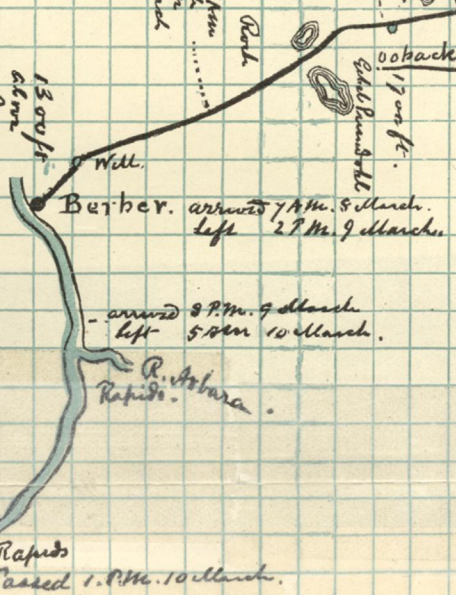 Rock
ooback
1700 ft.
1300 ft
above
Well.
Berber. arrived 7 A.M. 8 March.
left 2 P.M. 9 March.
arrived 8 P.M. 9 March
left 5 AM 10 March.
R. Atbara.
Rapids.
Rapids
Passed 1. P.M. 10 March.